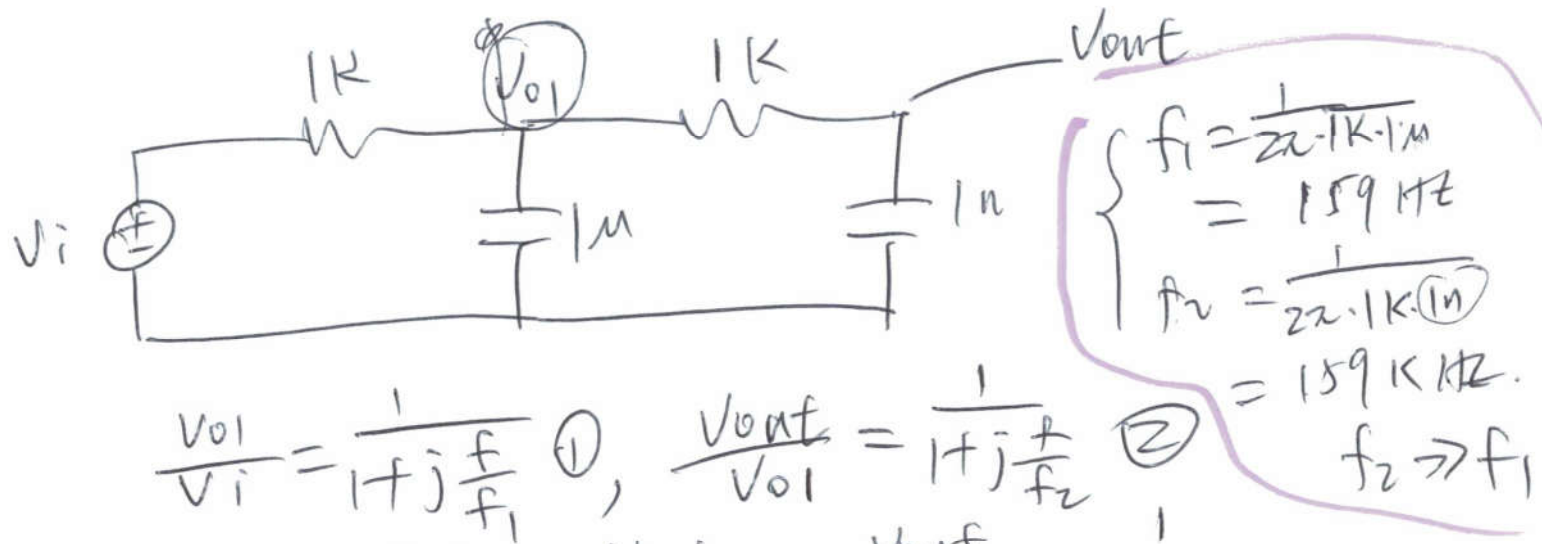 1K
V01
1K
Vout
Vi
1μ
1n
f1 = 1/(2π·1K·1μ)
= 159 HZ
f2 = 1/(2π·1K·1n)
= 159 K HZ.
f2 >> f1
V01/Vi = 1/(1+j f/f1) ①, Vout/V01 = 1/(1+j f/f2) ②